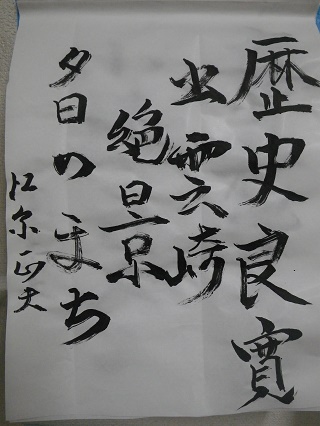 歴史良寛
出雲崎
絶景
夕日のまち
江尓正大